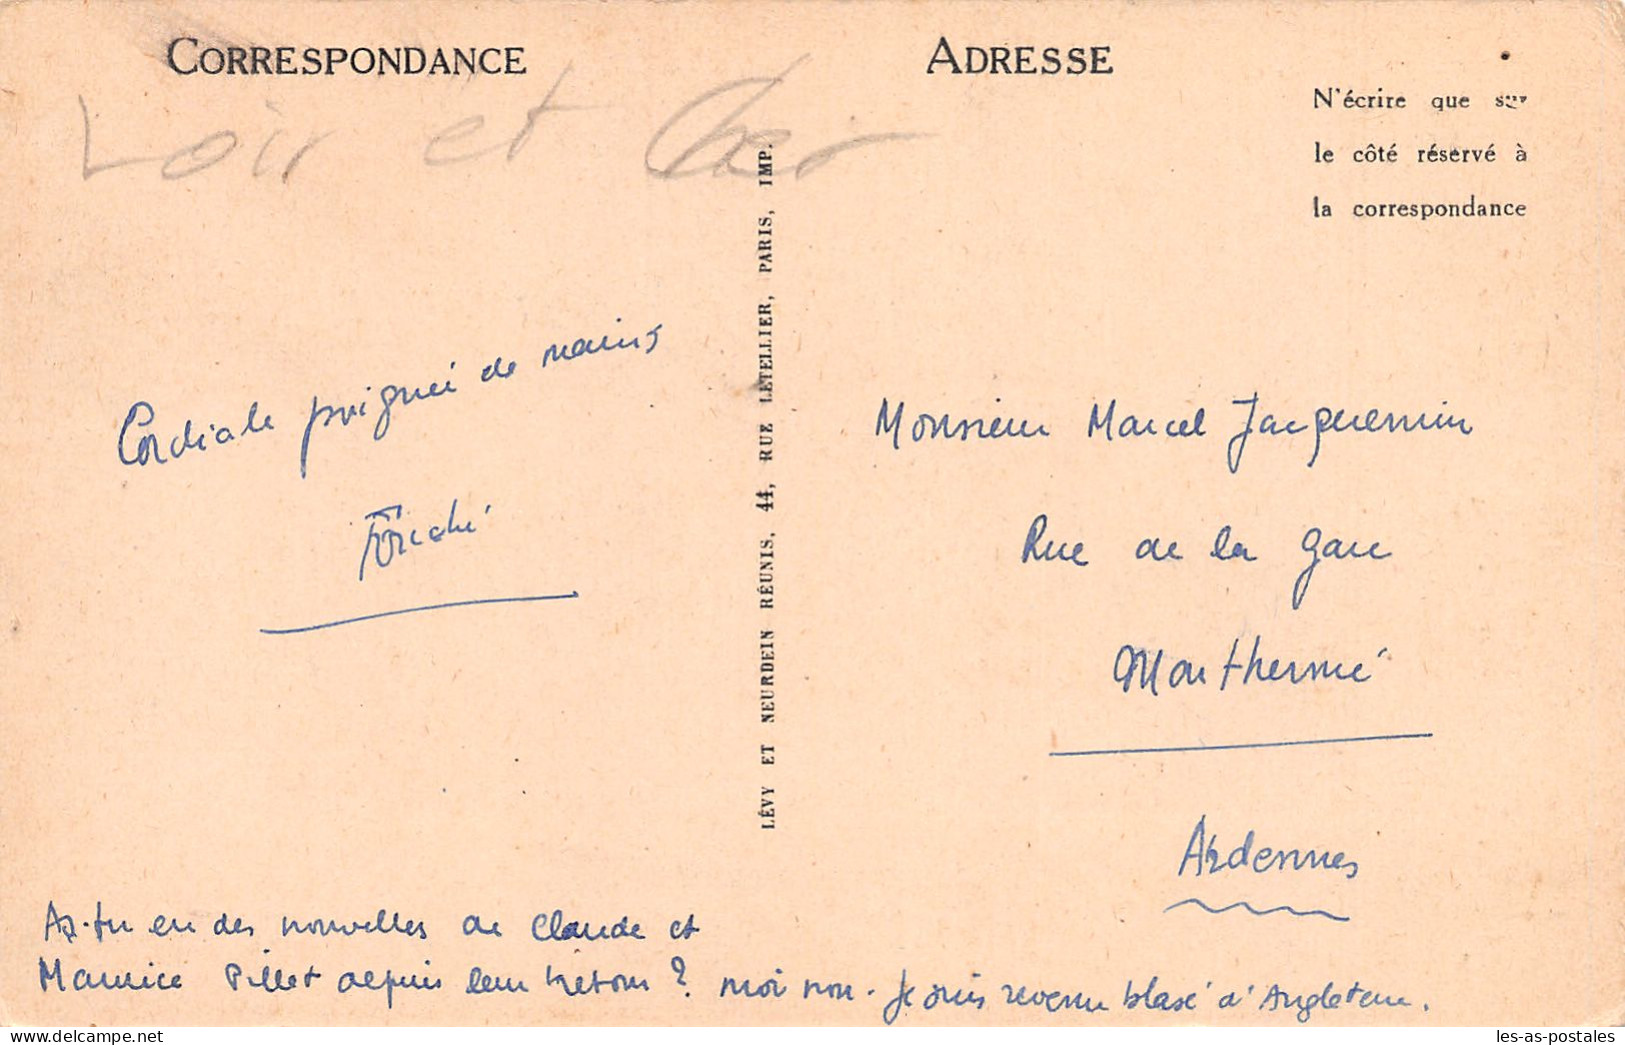 CORRESPONDANCE
Loir et Cher
Cordiale poignée de mains
As-tu eu des nouvelles de Claude et
Maurice Pillet depuis leur retour ? moi non. Je suis revenu blasé d'Angleterre.
LÉVY ET NEURDEIN RÉUNIS, 44, RUE LETELLIER, PARIS, IMP.
ADRESSE
N'écrire que sur
le côté réservé à
la correspondance
Monsieur Marcel Jacquemin
Rue de la Gare
Monthermé
Ardennes
les-as-postales